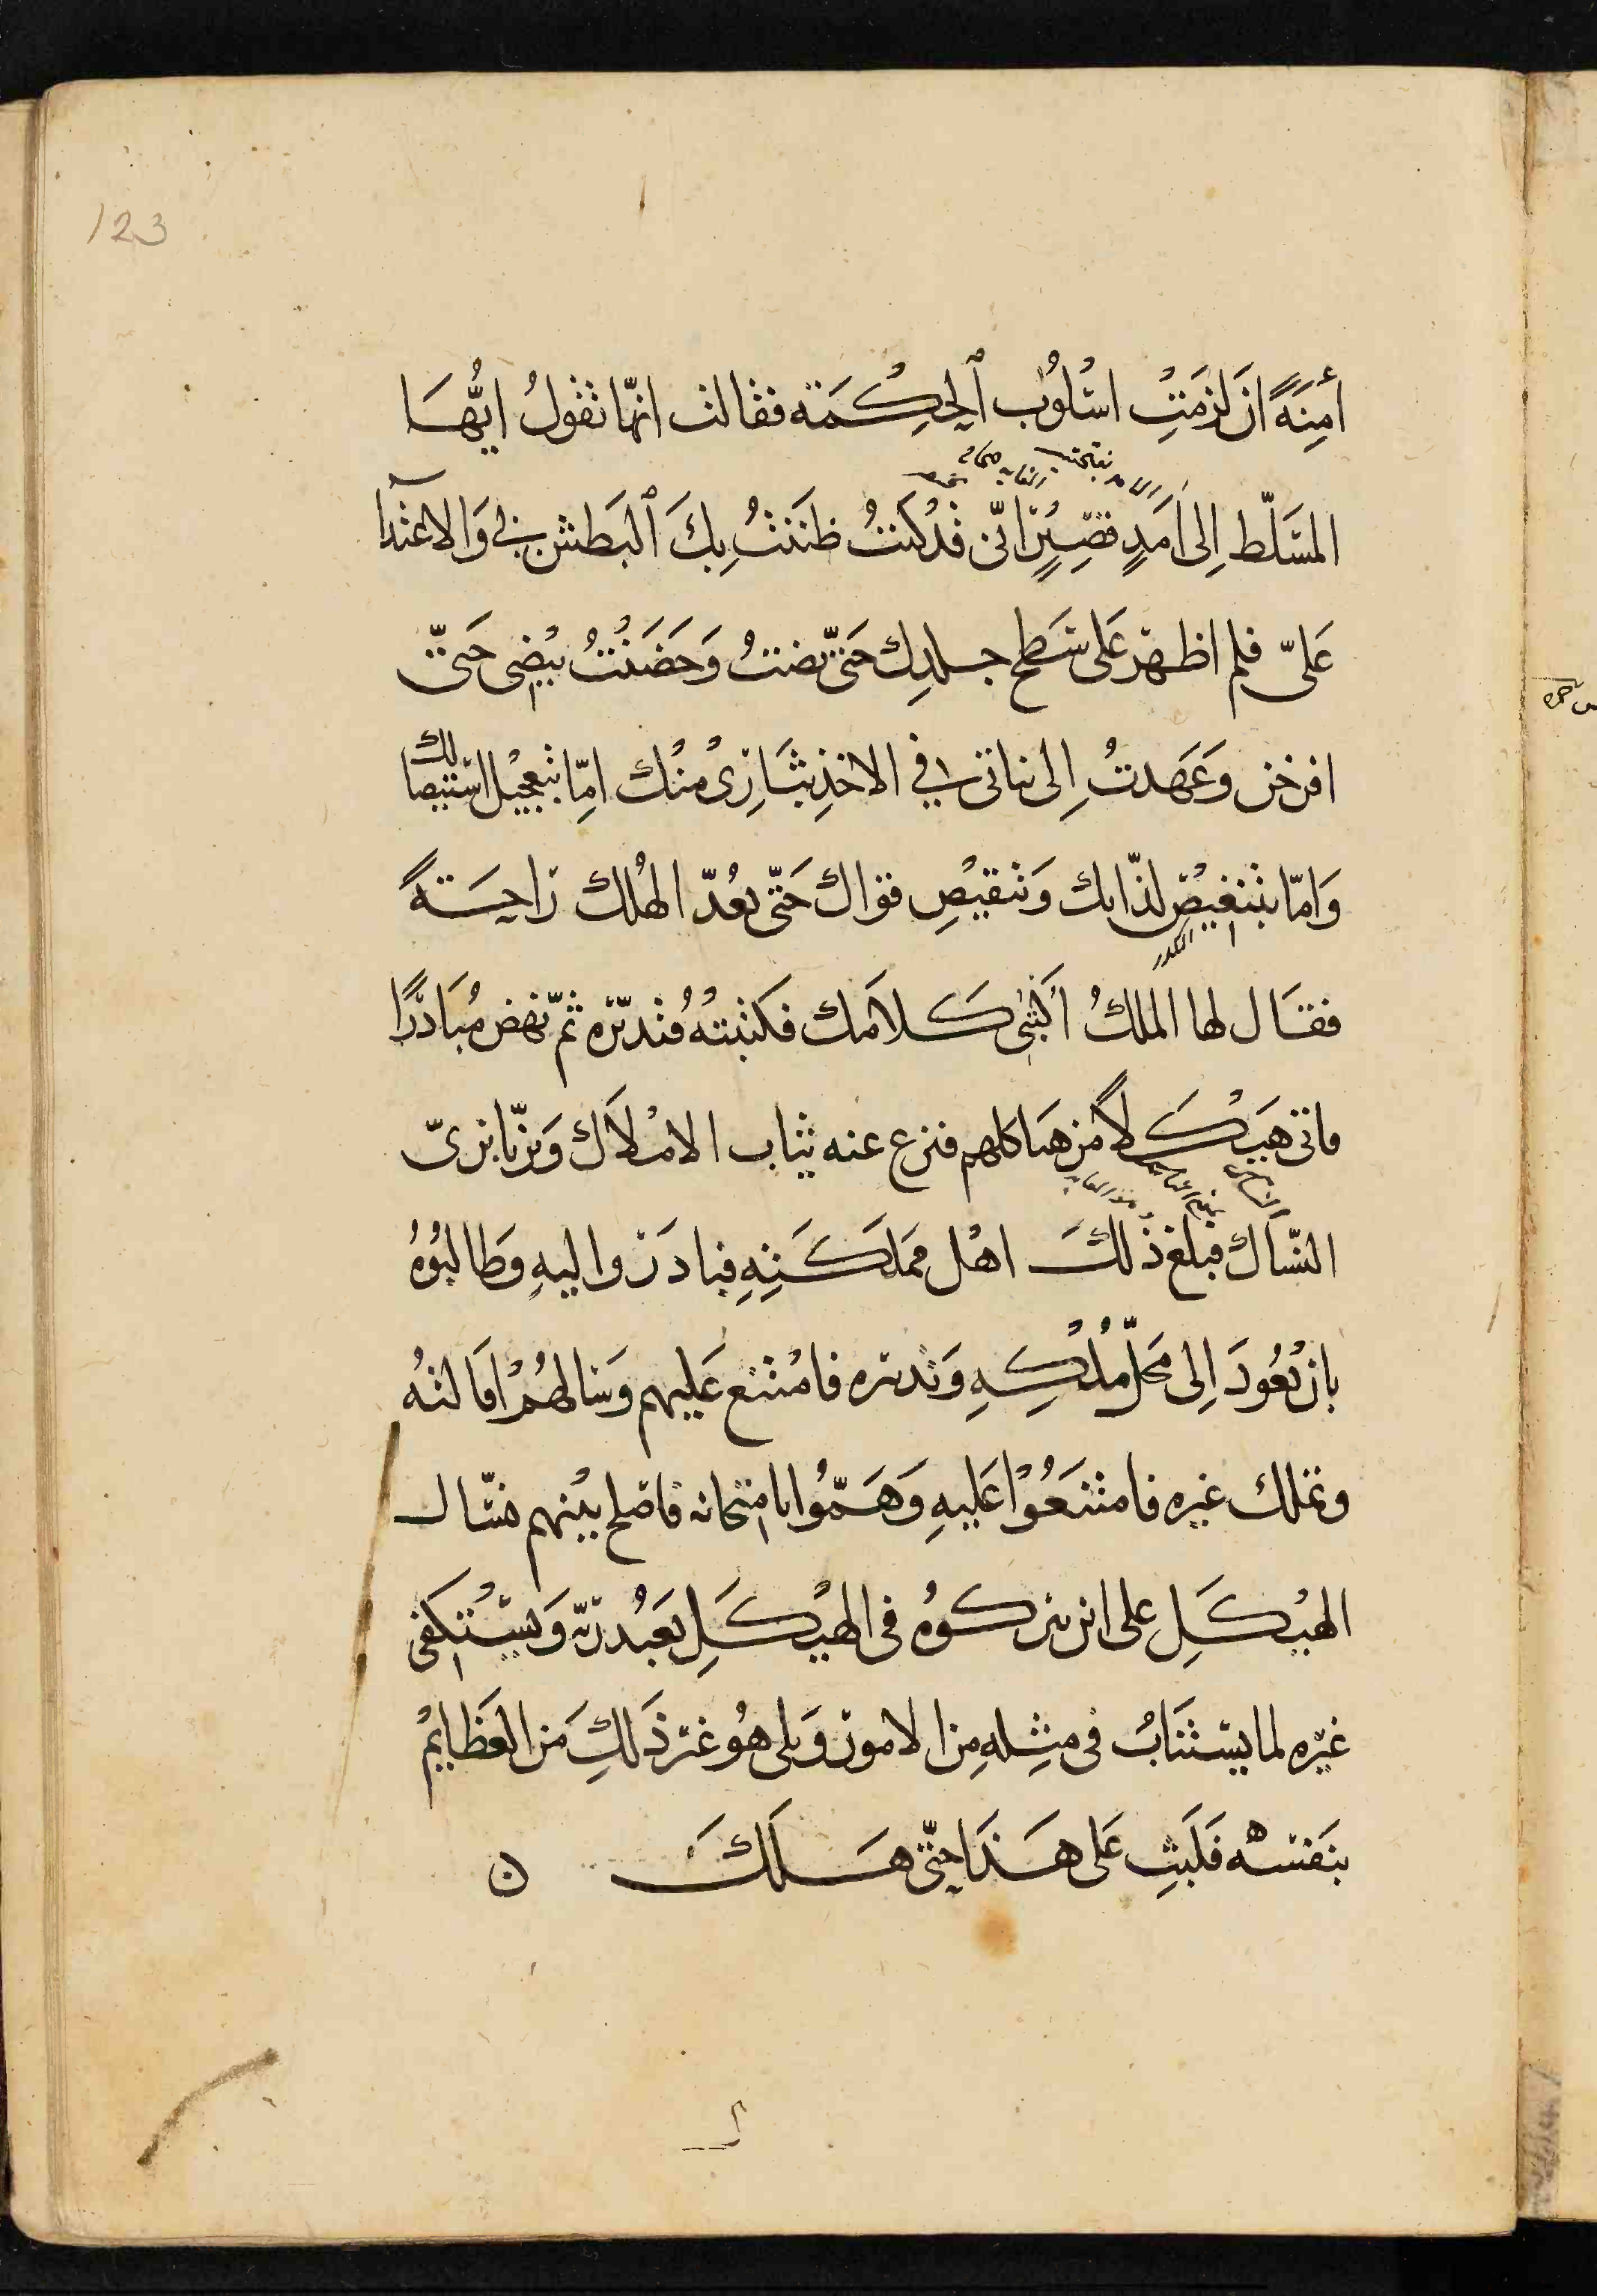 123
أمِنَةً ان لزمَتِ اسْلُوبَ ٱلحِكْمَة فقالت انمّا نقولُ ايُّهَا
المسَلّط اِلى اَمَدٍ قصِيْرٍ انّى قدْكنتُ ظنَنتُ بِكَ ٱلبَطش بى وَالاعتدآ
عَلىّ فلم اظهر عَلى سَطح جلدِك حَتىّ بضتُ وَحَضَنْتُ بيْضى حَتىّ
افرخن وعَهدتُ اِلى بناتى فى الاخذِ بثَارِىْ منْك امِّا بتعجيْل استيصالك
وَامّا بتنغيصِ لذّاتك وَتنقيْصِ قواك حَتّى يعُدّ الهُلك رَاحَةً
الكدر
فقَال لها الملكُ أكتبى كَلامَك فكتبَتهُ فتدبّره ثمّ نهَض مُبَادرًا
فاتى هَيْكَلاً من هَياكلهم فنزع عنه ثياب الامْلاَك وَتزيّا بزىّ
النسّاك فبلغ ذٰلكَ اهْل ممَلَكَتِهِ فبادَرَوا اليهِ وَطالبُوْهُ
بان يْعُودَ اِلى محَلّ مُلْكِهِ وَتدبيره فامْتنع عَليهم وَسَالهُمْ اقَالتهُ
وتملك غيره فامتنَعُوْا عَليهِ وَهَمُّوا بامتحانه فاصْلح بيْنهم نسّاك
الهيْكَلِ على ان يتركوهُ فى الهيْكَلِ يَعبُد ربّه وَيسْتكفى
غيْره لما يستنَابُ فى مثِلهِ مِن الامور وَيلى هُو غيْر ذَلكِ مَن العَظايمْ
بنَفسه فَلَبثِ عَلى هَذَا حَتّى هَلَكَ ن